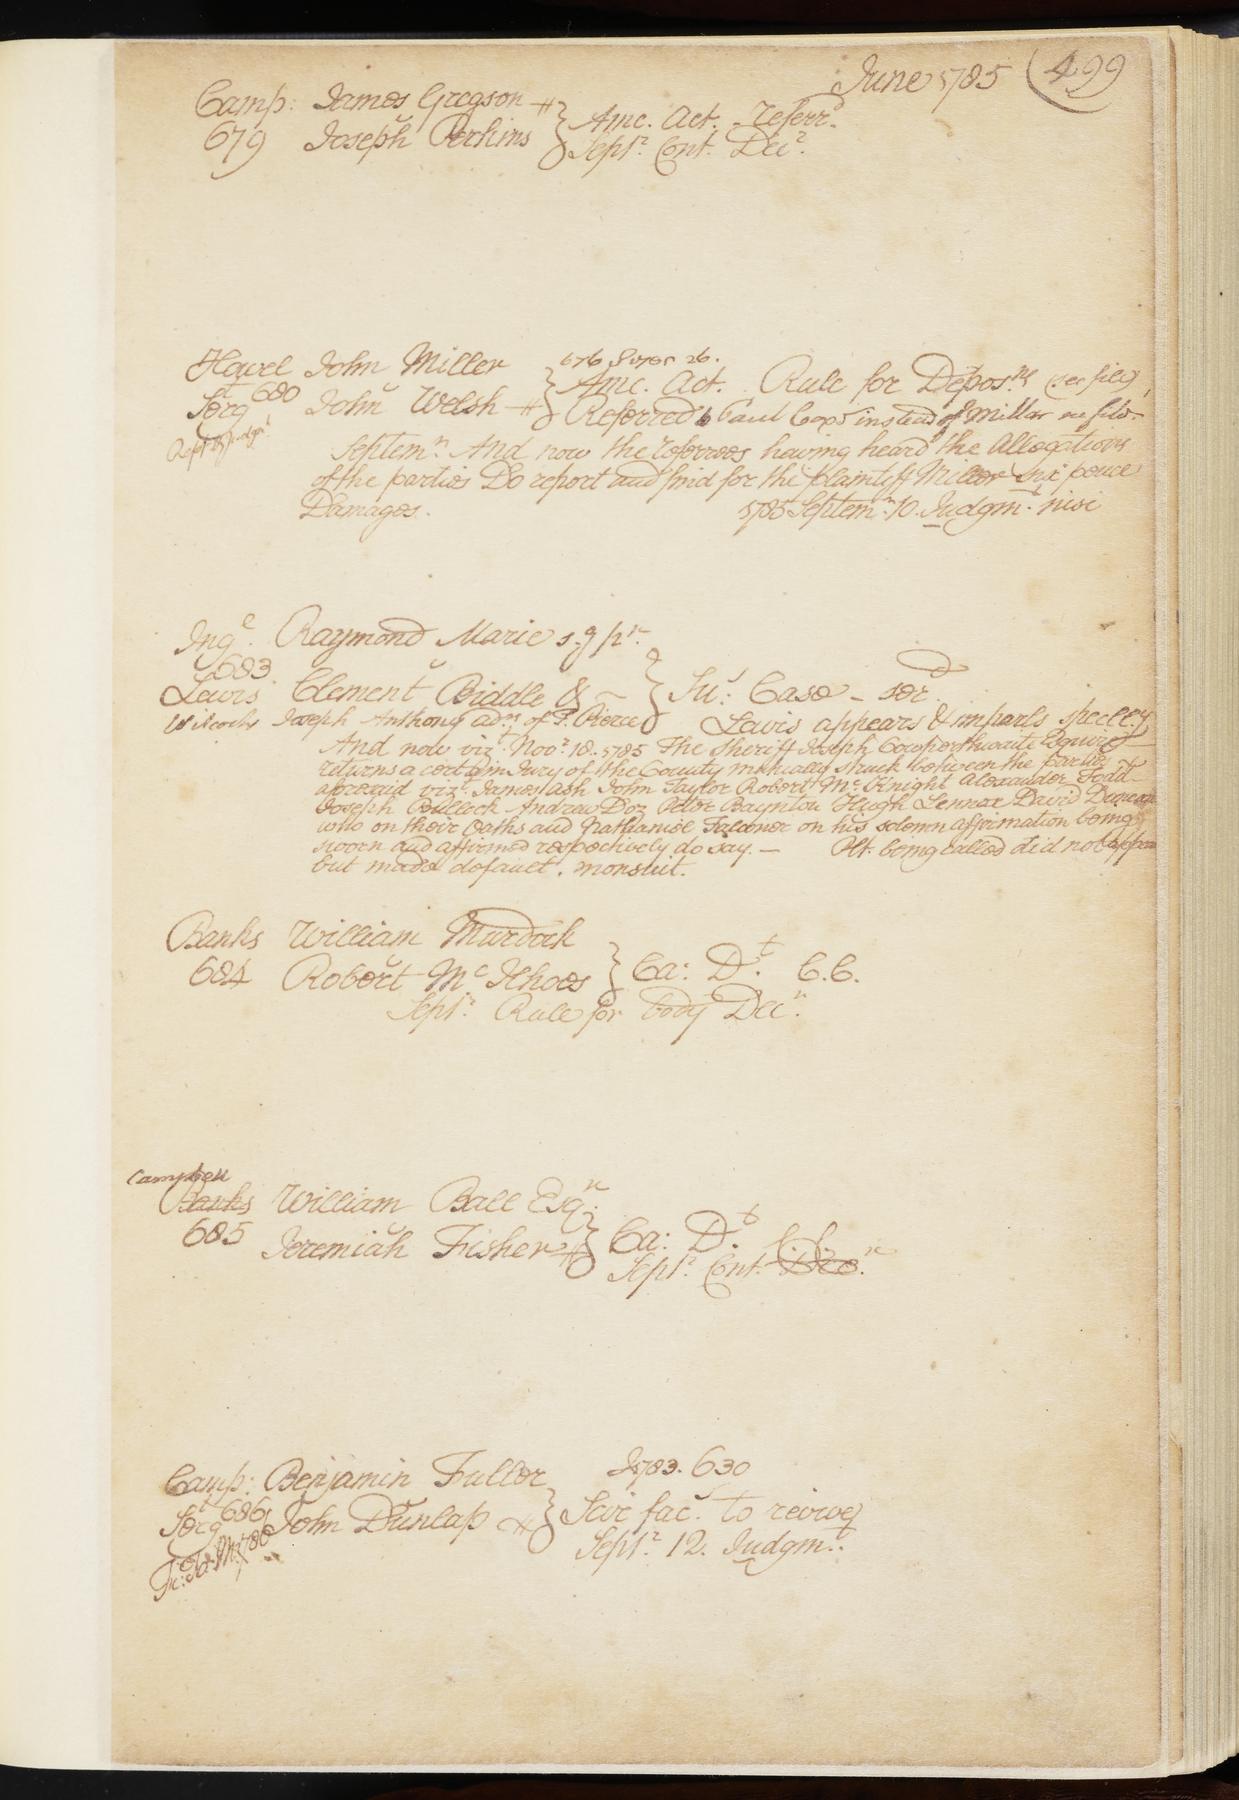 June 1785 (499
Camp: James Gregson
679 Joseph Perkins } Amc. Act. Referr.d
Sept.r Cont. Dec.r
Howel John Miller 676 26.
Serg.t 680 John Welsh } Amc. Act. Rule for Depos.ns (see file)
Referred Paul Cox instead of Millar see file
Septem.r And now the Referrees having heard the Allegations
of the parties Do report and find for the plaintiff Miller Six pence
Damages. 1785 Septem.r 10. Judgm.t nisi
Ing.e Raymond Marie
683
Lewis Clement Biddle & } Su.s Case - ser.d
Wilcocks Joseph Anthony adm.rs of P. Pierce Lewis appears & imparls specl.ly
And now viz.t Nov.r 18. 1785 The Sheriff Joseph Cowperthwaite Esquire
returns a certain Jury of the County mutually struck between the Parties
aforesaid viz.t James Ash John Taylor Robert Mc.Knight Alexander Todd
Joseph Bullock Andrew Doz Peter Baynton Hugh Lennox David Duncan
who on their Oaths and Nathaniel Falconer on his solemn affirmation being
sworn and affirmed respectively do say. — Plt. being called did not appear
but made default. nonsuit.
Banks William Murdock
684 Robert Mc Ilhoes } Ca: D.t C.C.
Sept.r Rule for body Dec.r
Campbell
Banks William Ball Esq.r
685 Jeremiah Fisher } Ca: D.t
Sept.r Cont. Dec.r
Camp: Benjamin Fuller J 1783. 630
Serg.t 686 John Dunlap } Scir fac.s to revive
Sept.r 12. Judgm.t